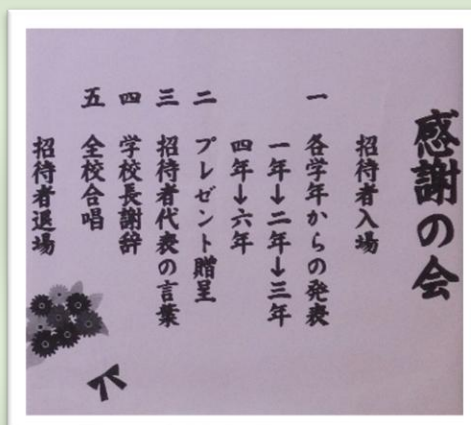 感謝の会
招待者入場
一 各学年からの発表
一年→二年→三年
四年→六年
二 プレゼント贈呈
三 招待者代表の言葉
四 学校長謝辞
五 全校合唱
招待者退場